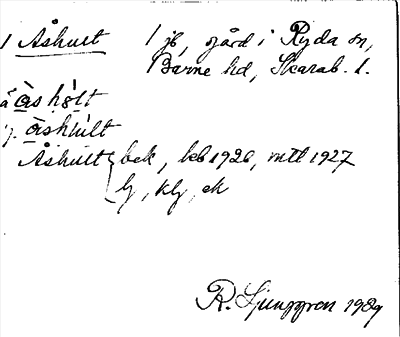 1 Åshult 1 jb, gård i Ryda sn,
Barne hd, Skarab. l.
a åshòlt
y. åshult
Åshult bek, keb 1926, mtl 1927
lj, klj, ek
R. Ljunggren 1989